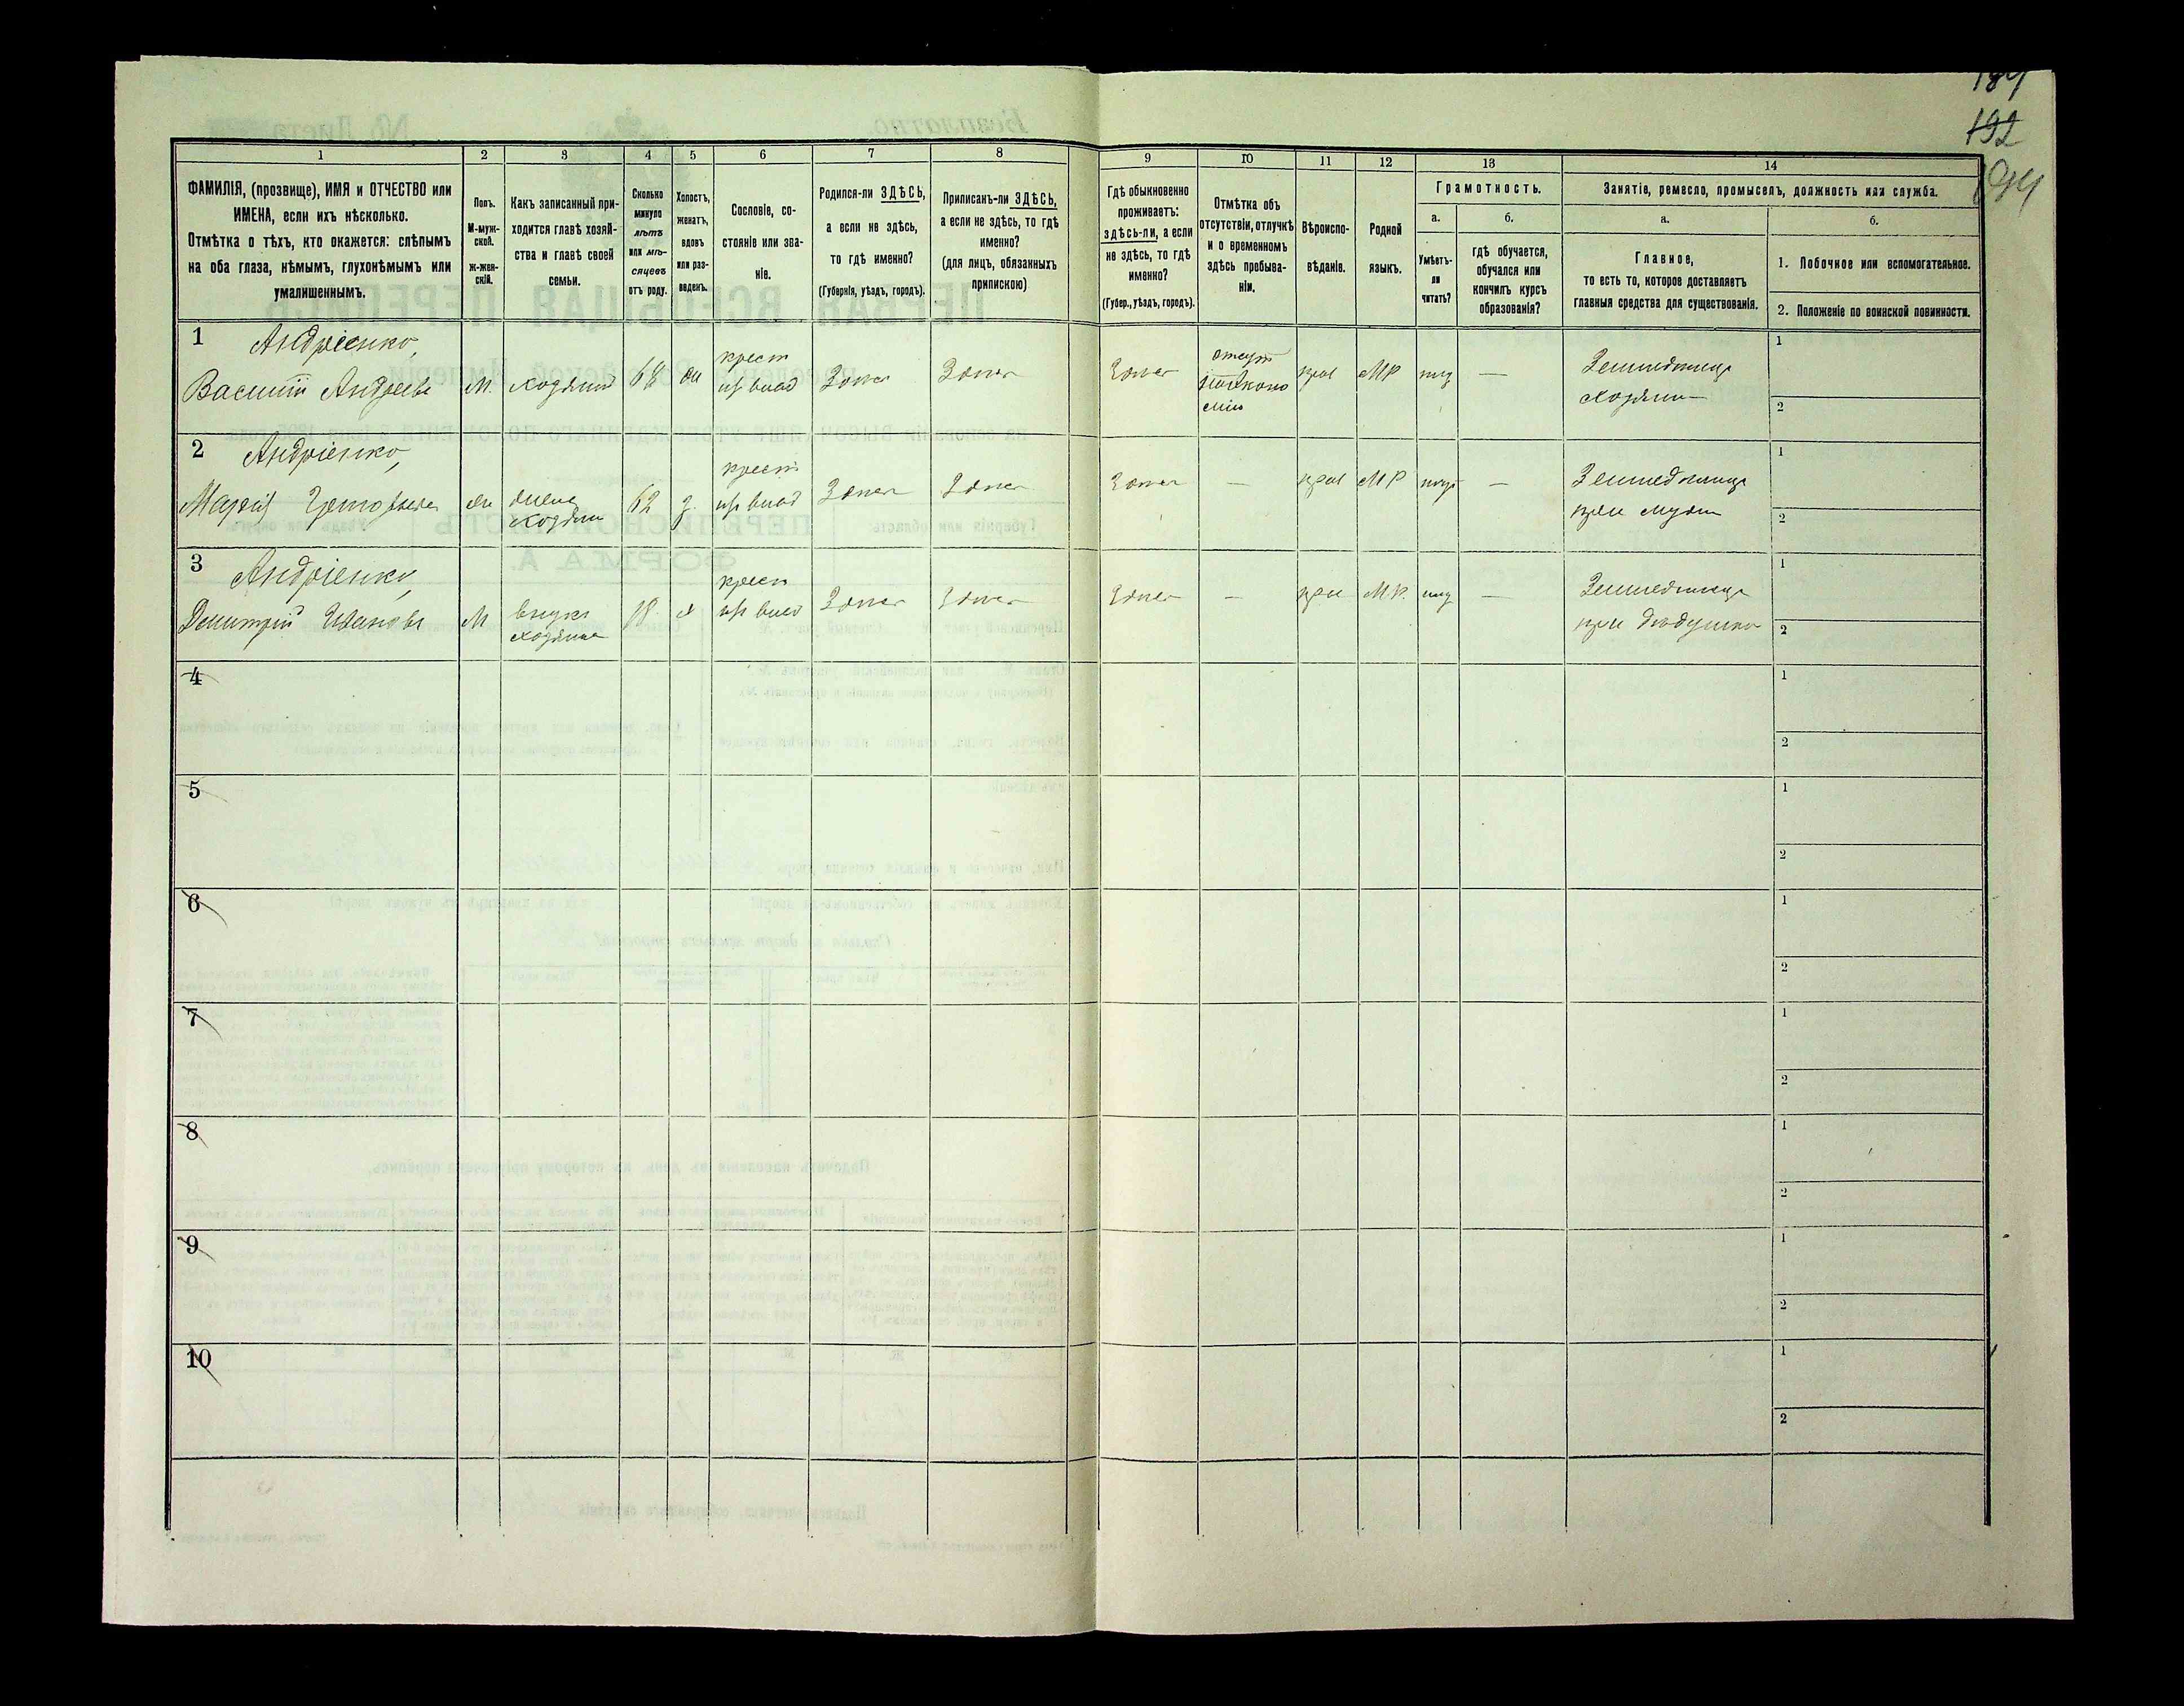 184
192
194
1
2
3
4
5
6
7
8
9
10
11
12
13
14
ФАМИЛІЯ, (прозвище), ИМЯ и ОТЧЕСТВО или
ИМЕНА, если ихъ нѣсколько.
Отмѣтка о тѣхъ, кто окажется: слѣпымъ
на оба глаза, нѣмымъ, глухонѣмымъ или
умалишеннымъ.
Полъ.
М-муж-
ской.
ж-жен-
скій.
Какъ записанный при-
ходится главѣ хозяй-
ства и главѣ своей
семьи.
Сколько
минуло
лѣтъ
или мѣ-
сяцевъ
отъ роду.
Холостъ,
женатъ,
вдовъ
или раз-
веденъ.
Сословіе, со-
стояніе или зва-
ніе.
Родился-ли ЗДѢСЬ,
а если не здѣсь,
то гдѣ именно?
(Губернія, уѣздъ, городъ).
Приписанъ-ли ЗДѢСЬ,
а если не здѣсь, то гдѣ
именно?
(для лицъ, обязанныхъ
припискою)
Гдѣ обыкновенно
проживаетъ:
здѣсь-ли, а если
не здѣсь, то гдѣ
именно?
(Губер., уѣздъ, городъ).
Отмѣтка объ
отсутствіи, отлучкѣ
и о временномъ
здѣсь пребыва-
ніи.
Вѣроиспо-
вѣданіе.
Родной
языкъ.
Грамотность.
а.
Умѣетъ-
ли
читать?
б.
гдѣ обучается,
обучался или
кончилъ курсъ
образованія?
Занятіе, ремесло, промыселъ, должность или служба.
а.
Главное,
то есть то, которое доставляетъ
главныя средства для существованія.
б.
1. Побочное или вспомогательное.
2. Положеніе по воинской повинности.
1 Андріенко,
Василій Андреевъ М. хозяинъ 68 жи крест из влад Здесь Здесь Здесь отсут прав МР нѣт — Земледѣлец
хозяин
1
2
2 Андріенко,
Марія Григорьева жи жена хозяина 62 з. крест из влад Здесь Здесь Здесь — прав МР нѣт — Земледѣлица
при мужѣ
1
2
3 Андріенко,
Дмитрій Иванов М внук хозяина 18 х крест из влад Здесь Здесь Здесь — прав МР. нѣт — Земледѣлец
при дѣдушкѣ
1
2
4
1
2
5
1
2
6
1
2
7
1
2
8
1
2
9
1
2
10
1
2